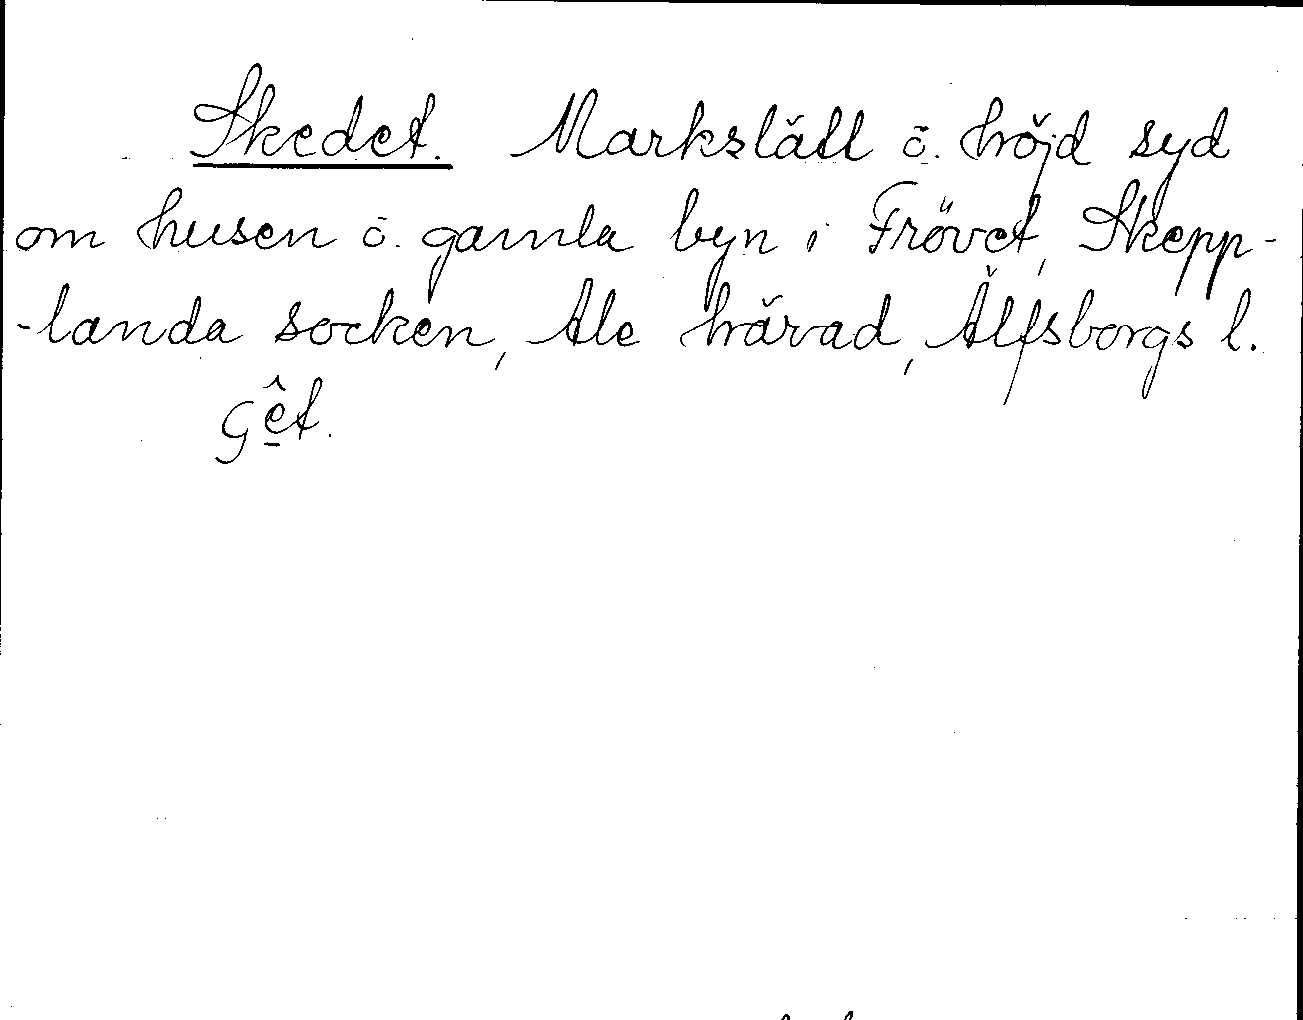 Skedet. Markslätt ö. höjd syd
om husen ö. gamla byn i Frövet, Skepp-
-landa socken, Ale härad, Älfsborgs l.